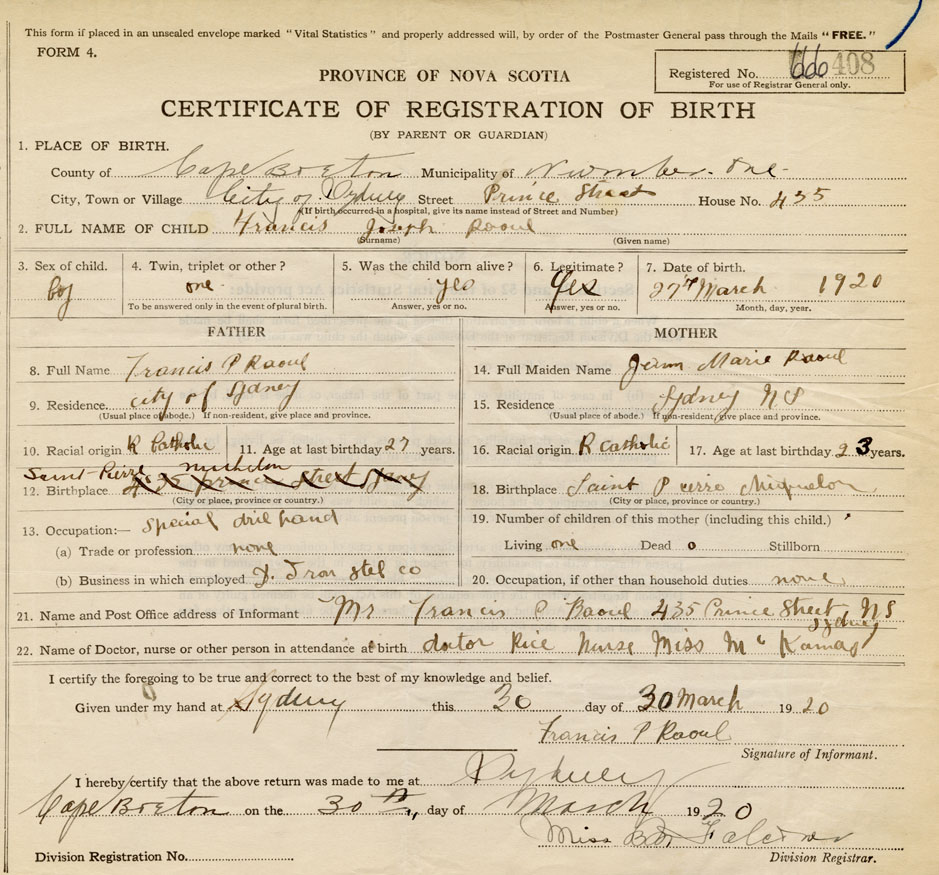 This form if placed in an unsealed envelope marked "Vital Statistics" and properly addressed will, by order of the Postmaster General pass through the Mails "FREE."
FORM 4.
PROVINCE OF NOVA SCOTIA
Registered No. 666 408
For use of Registrar General only.
CERTIFICATE OF REGISTRATION OF BIRTH
(BY PARENT OR GUARDIAN)
1. PLACE OF BIRTH.
County of Cape Breton Municipality of Number One
City, Town or Village City of Sydney Street Prince Street House No. 435
(If birth occurred in a hospital, give its name instead of Street and Number)
2. FULL NAME OF CHILD Francis Joseph Raoul
(Surname) (Given name)
3. Sex of child. 4. Twin, triplet or other? 5. Was the child born alive? 6. Legitimate? 7. Date of birth.
boy one yes Yes 27th March 1920
To be answered only in the event of plural birth. Answer, yes or no. Answer, yes or no. Month, day, year.
FATHER
8. Full Name Francis P Raoul
9. Residence. city of Sydney
(Usual place of abode.) If non-resident, give place and province.
10. Racial origin R Catholic 11. Age at last birthday 27 years.
Saint-Pierre michelon
12. Birthplace 435 prince street Sydney
(City or place, province or country.)
13. Occupation:— Special dril hand
(a) Trade or profession none
(b) Business in which employed D. Iron stel co
MOTHER
14. Full Maiden Name Marie Raoul
15. Residence Sydney NS
(Usual place of abode.) If non-resident, give place and province.
16. Racial origin R catholic 17. Age at last birthday 23 years.
18. Birthplace Saint Pierre Miquelon
(City or place, province or country.)
19. Number of children of this mother (including this child.)
Living one Dead 0 Stillborn
20. Occupation, if other than household duties none
21. Name and Post Office address of Informant Mr Francis P Raoul 435 Prince Street, NS
Sydney
22. Name of Doctor, nurse or other person in attendance at birth doctor Rice Nurse Miss Mc
I certify the foregoing to be true and correct to the best of my knowledge and belief.
Given under my hand at Sydney this 30 day of 30 March 1920
Francis P Raoul
Signature of Informant.
I hereby certify that the above return was made to me at Sydney
Cape Breton on the 30th, day of March 1920
Miss
Division Registration No. Division Registrar.